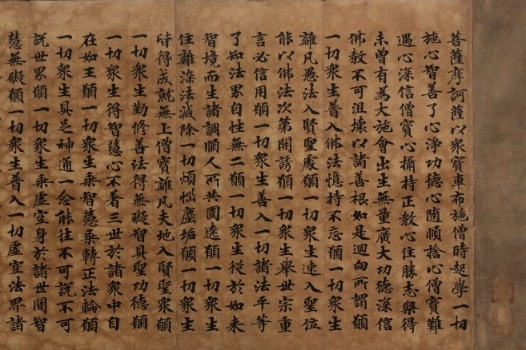 菩薩摩訶薩以眾寶車布施僧時起學一切
施心智善了心淨功德心隨順捨心僧寶難
遇心深信僧寶心攝持正教心住勝志樂得
未曾有為大施會出生無量廣大功德深信
佛教不可沮壞以諸善根如是迴向所謂願
一切眾生普入佛法憶持不忘願一切眾生
離凡愚法入賢聖處願一切眾生速入聖位
能以佛法次第開誘願一切眾生舉世宗重
言必信用願一切眾生善入一切諸法平等
了知法界自性無二願一切眾生從於如來
智境而生諸調順人所共圍遶願一切眾生
住離染法滅除一切煩惱塵垢願一切眾生
皆得成就無上僧寶離凡夫地入賢聖眾願
一切眾生勤修善法得無礙智具聖功德願
一切眾生得智慧心不著三世於諸眾中自
在如王願一切眾生乘智慧乘轉正法輪願
一切眾生具足神通一念能往不可說不可
說世界願一切眾生乘虛空身於諸世間智
慧無礙願一切眾生普入一切虛空法界諸